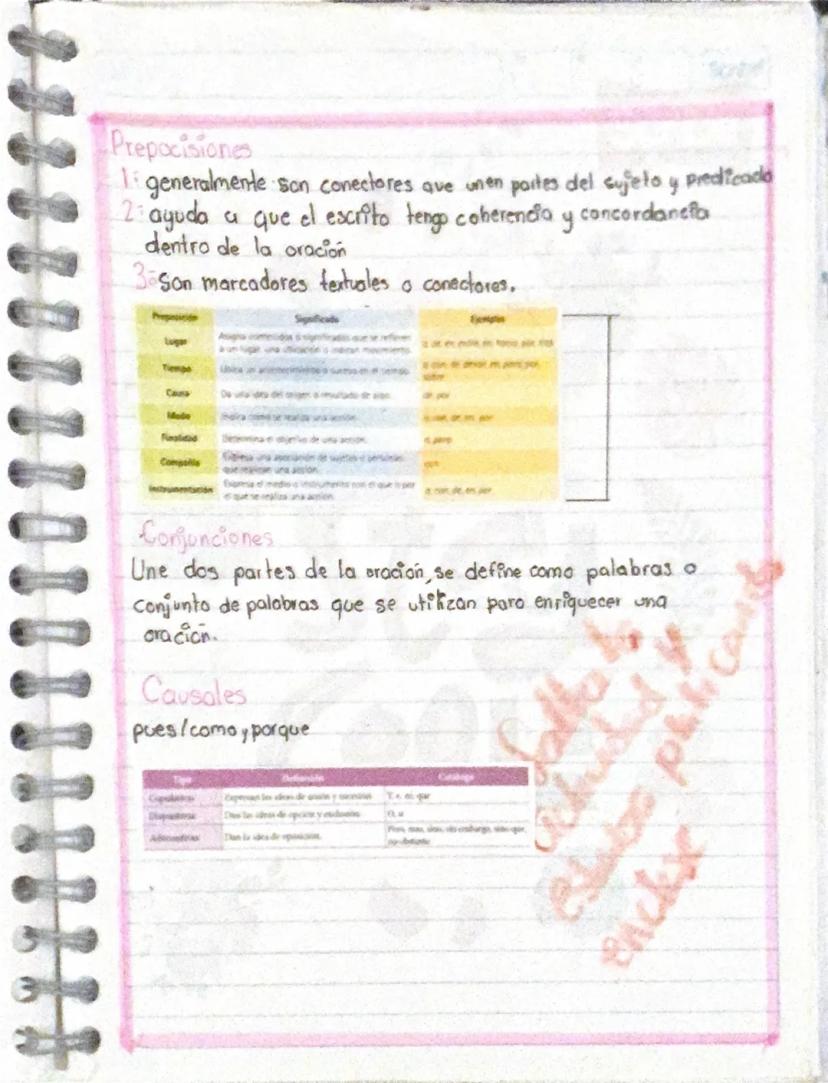 Prepocisiones
1: generalmente son conectores que unen partes del sujeto y predicado
2: ayuda a que el escrito tengo coherencia y concordancia
dentro de la oración
3: Son marcadores textuales o conectores.
Preposición Significado Ejemplos
Lugar Asigna contenidos o significados que se refieren
a un lugar, una ubicación o indican movimiento.
Tiempo Ubica un acontecimiento o suceso en el tiempo.
Causa Da una idea del origen o resultado de algo. de, por
Modo Indica cómo se realiza una acción. a, con, de, en, por
Finalidad Determina el objetivo de una acción. a, para
Compañía Expresa una asociación de sujetos o personas
que realizan una acción. con
Instrumentación Expresa el medio o instrumento con el que o por
el que se realiza una acción. a, con, de, en, por
Conjunciones
Une dos partes de la oración, se define como palabras o
conjunto de palabras que se utilizan para enriquecer una
oración.
Causales
pues/como y porque
Tipo Definición Catálogo
Copulativas Expresan las ideas de unión y sucesión. Y, e, ni, que
Disyuntivas Dan las ideas de opción y exclusión. O, u
Adversativas Dan la idea de oposición. Pero, mas, sino, sin embargo, sino que,
no obstante
actividad y
platicando
en clase